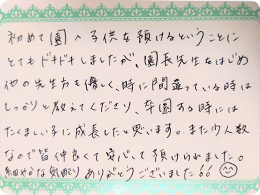 初めて園へ子供を預けるということに
とてもドキドキしましたが、園長先生をはじめ
他の先生方も優しく、時に間違っている時は
しっかりと教えてくださり、卒園する時には
たくましい子に成長したと思います。また少人数
なので皆仲良くて安心して預けられました。
細やかな気配りありがとうございました!!